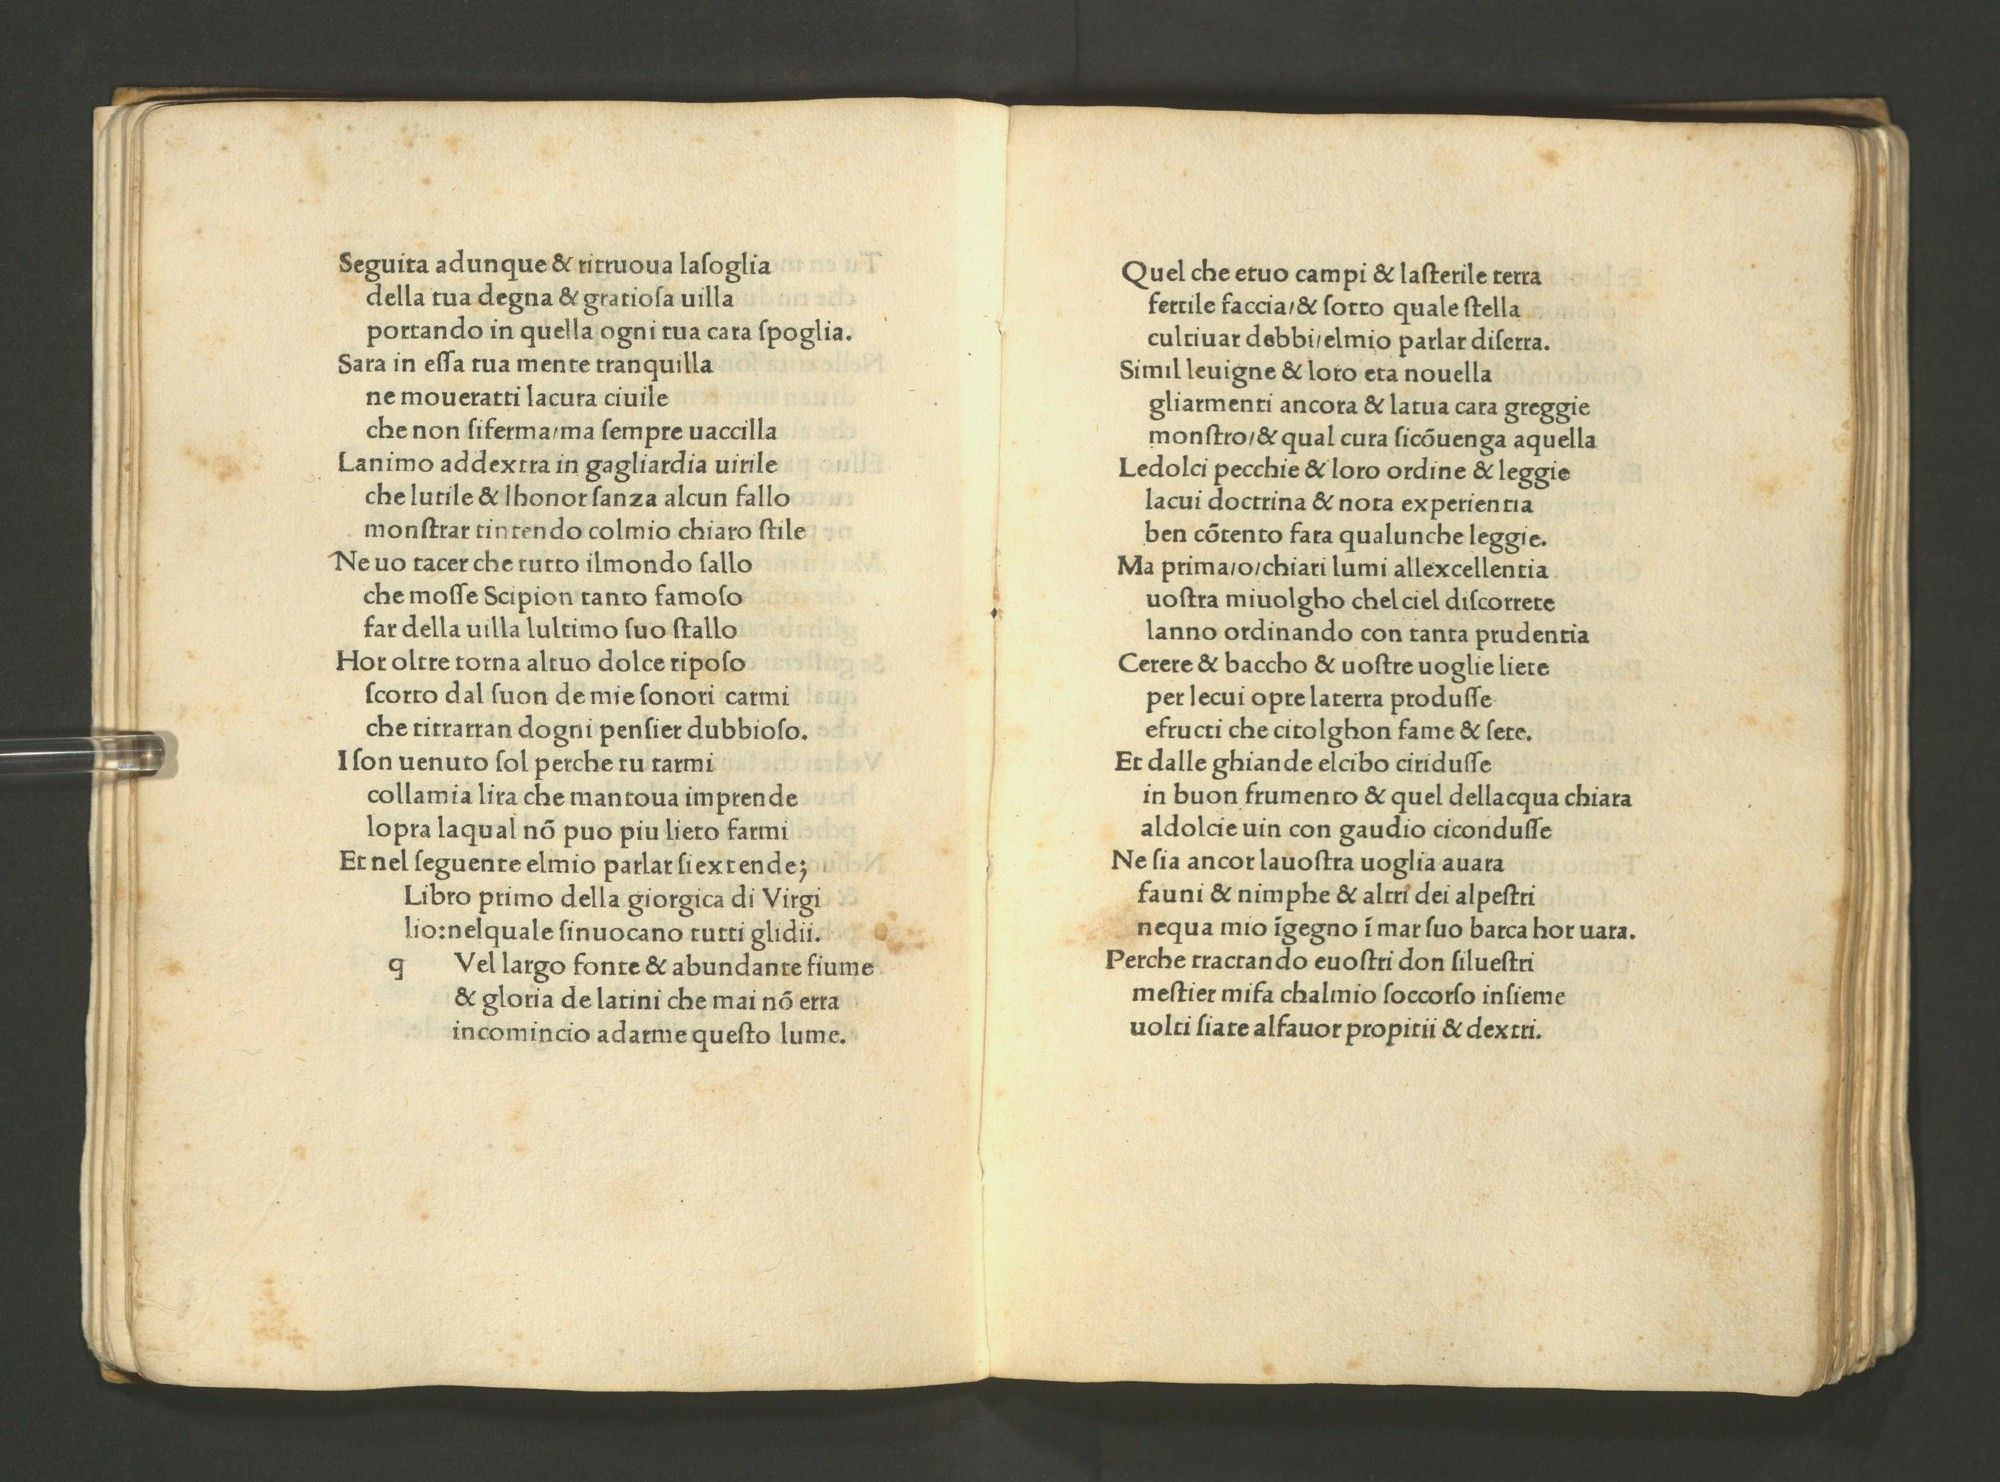 Seguita adunque & ritruoua laſoglia
della tua degna & gratioſa uilla
portando in quella ogni tua cara ſpoglia.
Sara in eſſa tua mente tranquilla
ne moueratti lacura ciuile
che non ſiferma/ma ſempre uaccilla
Lanimo addextra in gagliardia uirile
che lutile & lhonor ſanza alcun fallo
monſtrar tintendo colmio chiaro ſtile
Ne uo tacer che tutto ilmondo ſallo
che moſſe Scipion tanto famoſo
far della uilla lultimo ſuo ſtallo
Hor oltre torna altuo dolce ripoſo
ſcorto dal ſuon de mie ſonori carmi
che ritrarran dogni penſier dubbioſo.
I ſon uenuto ſol perche tu tarmi
collamia lira che mantoua imprende
lopra laqual nõ puo piu lieto farmi
Et nel ſeguente elmio parlar ſiextende;
Libro primo della giorgica di Virgi
lio:nelquale ſinuocano tutti glidii.
q Vel largo fonte & abundante fiume
& gloria de latini che mai nõ erra
incomincio adarme queſto lume.
Quel che etuo campi & laſterile terra
fertile faccia/& ſotto quale ſtella
cultiuar debbi/elmio parlar diſerra.
Simil leuigne & loro eta nouella
gliarmenti ancora & latua cara greggie
monſtro/& qual cura ſicõuenga aquella
Ledolci pecchie & loro ordine & leggie
lacui doctrina & nota experientia
ben cõtento fara qualunche leggie.
Ma prima/o/chiari lumi allexcellentia
uoſtra miuolgho chel ciel diſcorrete
lanno ordinando con tanta prudentia
Cerere & baccho & uoſtre uoglie liete
per lecui opre laterra produſſe
efructi che citolghon fame & ſete.
Et dalle ghiande elcibo ciriduſſe
in buon frumento & quel dellacqua chiara
aldolcie uin con gaudio ciconduſſe
Ne ſia ancor lauoſtra uoglia auara
fauni & nimphe & altri dei alpeſtri
nequa mio ĩgegno ĩ mar ſuo barca hor uara.
Perche tractando euoſtri don ſilueſtri
meſtier mifa chalmio ſoccorſo inſieme
uolti ſiate alfauor propitii & dextri.